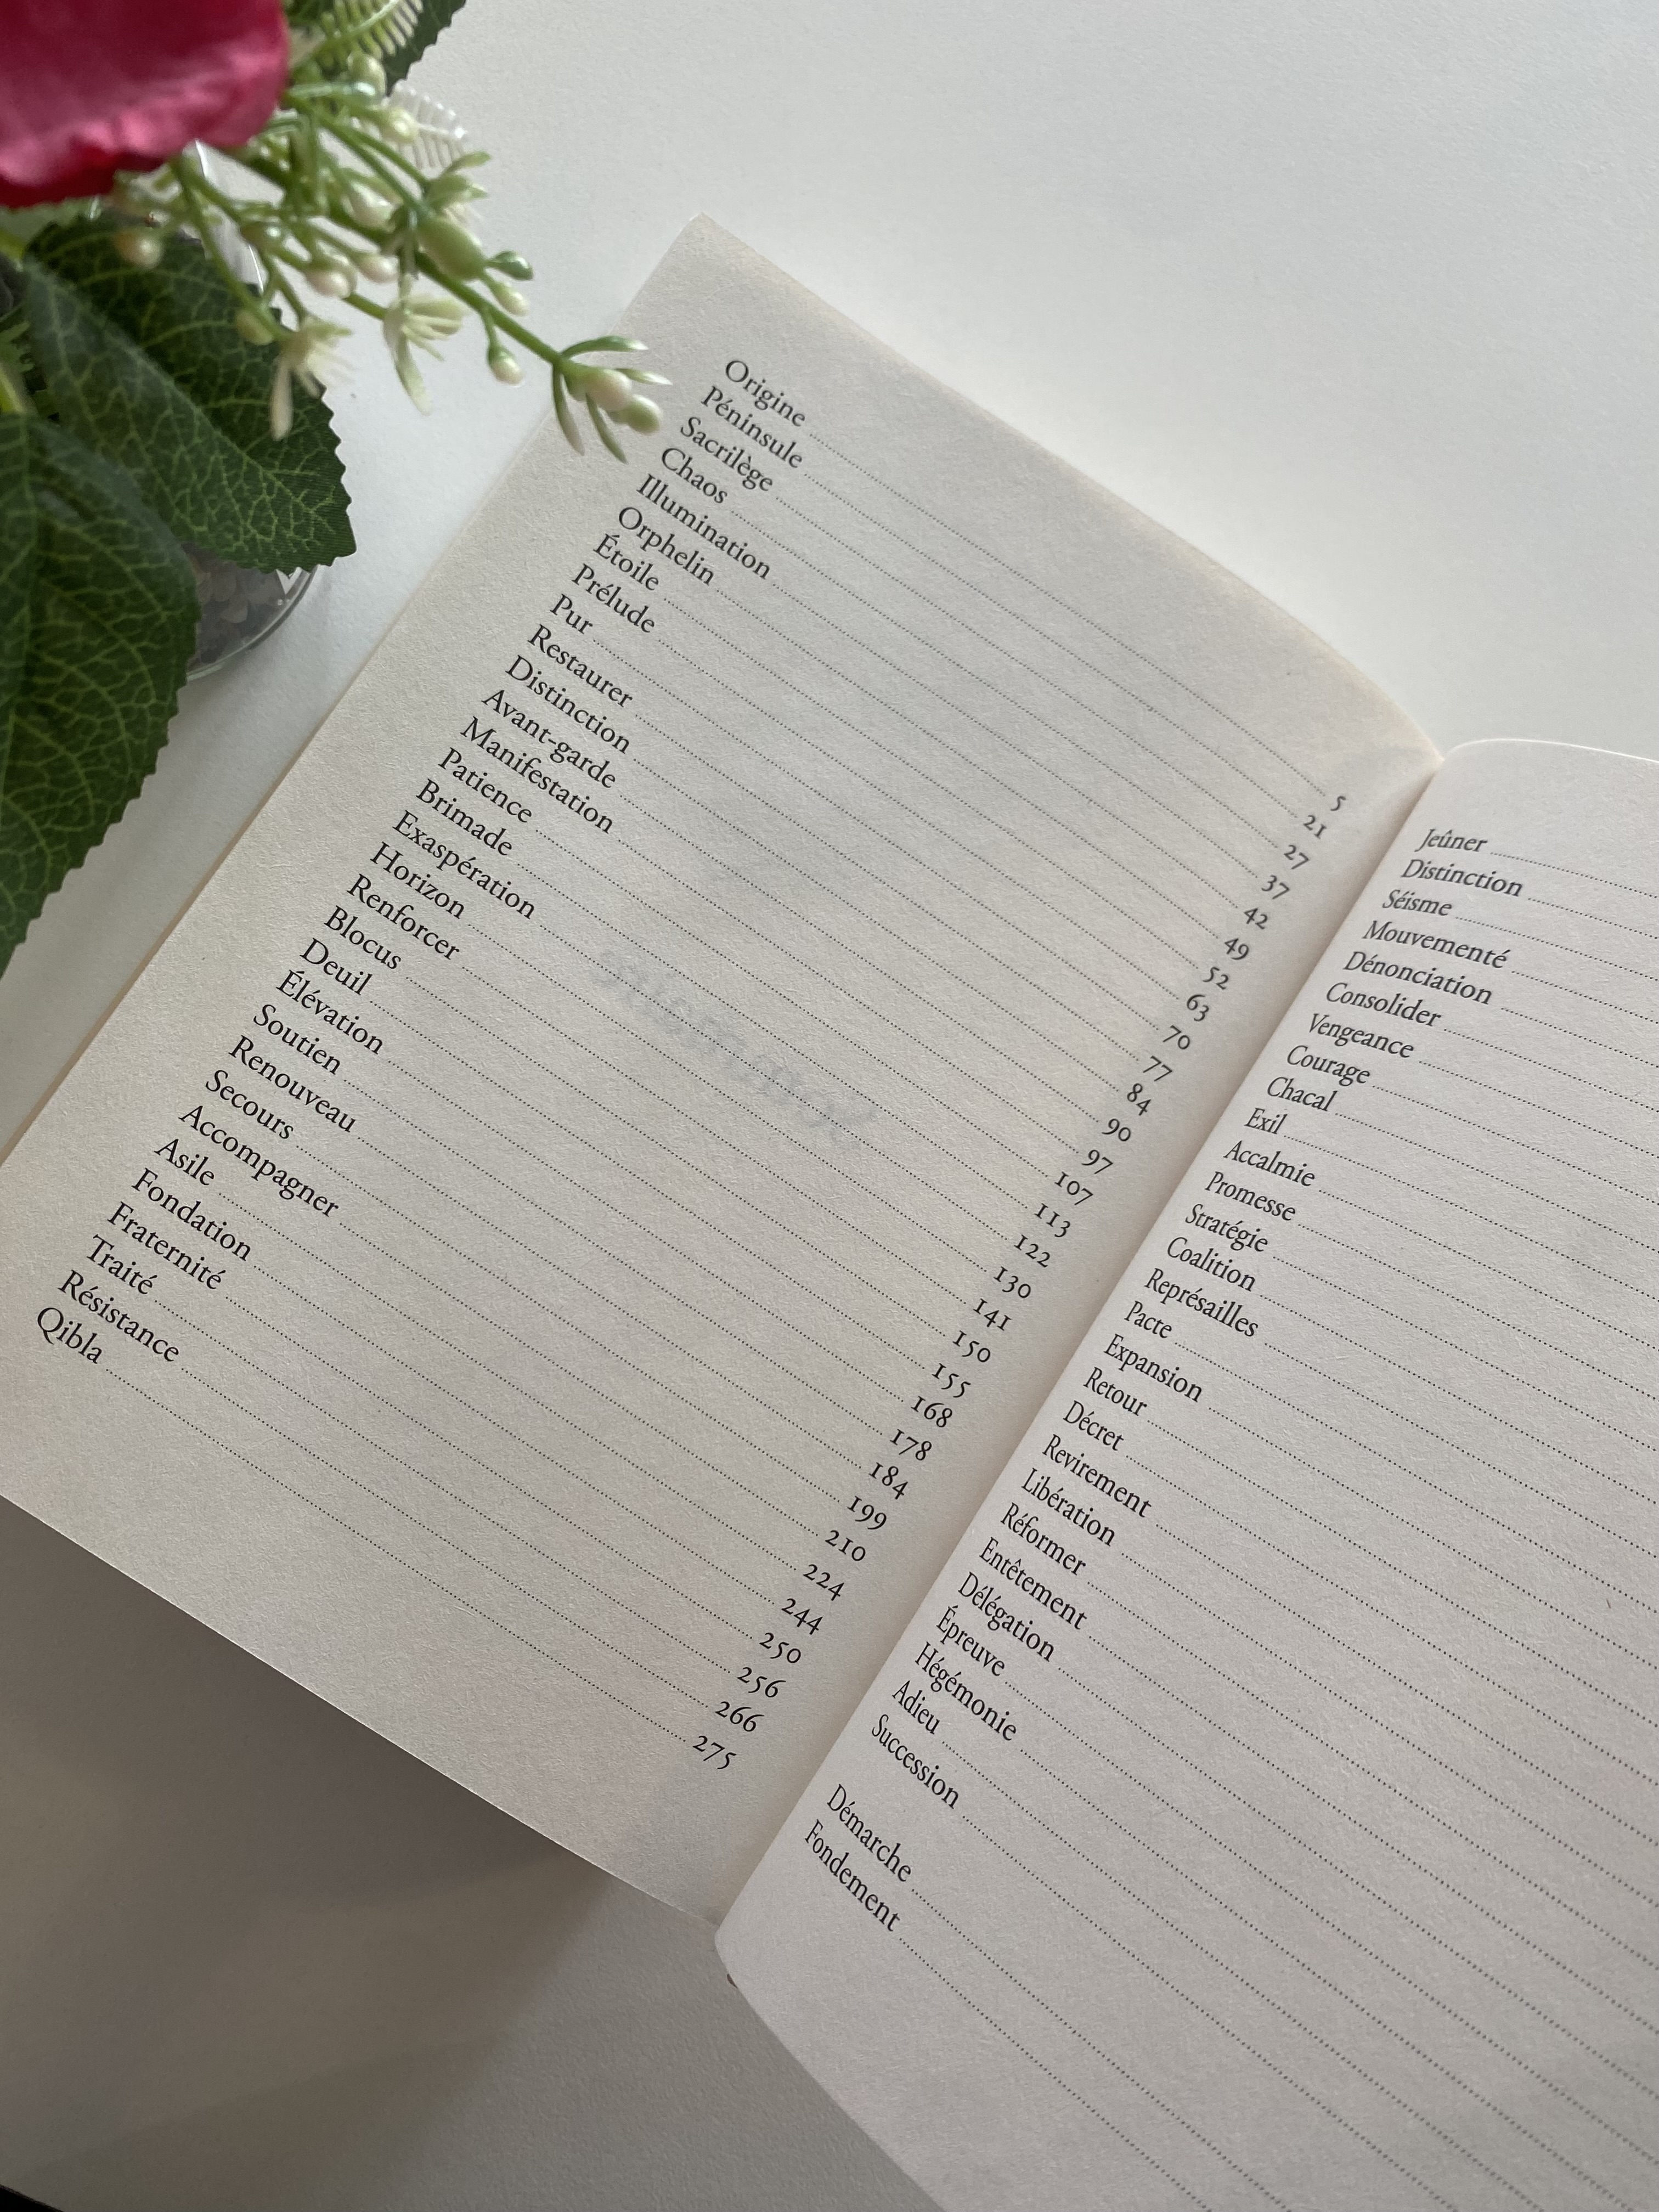 Origine ........ 5
Péninsule ........ 21
Sacrilège ........ 27
Chaos ........ 37
Illumination ........ 42
Orphelin ........ 49
Étoile ........ 52
Prélude ........ 63
Pur ........ 70
Restaurer ........ 77
Distinction ........ 84
Avant-garde ........ 90
Manifestation ........ 97
Patience ........ 107
Brimade ........ 113
Exaspération ........ 122
Horizon ........ 130
Renforcer ........ 141
Blocus ........ 150
Deuil ........ 155
Élévation ........ 168
Soutien ........ 178
Renouveau ........ 184
Secours ........ 199
Accompagner ........ 210
Asile ........ 224
Fondation ........ 244
Fraternité ........ 250
Traité ........ 256
Résistance ........ 266
Qibla ........ 275
Jeûner ........
Distinction ........
Séisme ........
Mouvementé ........
Dénonciation ........
Consolider ........
Vengeance ........
Courage ........
Chacal ........
Exil ........
Accalmie ........
Promesse ........
Stratégie ........
Coalition ........
Représailles ........
Pacte ........
Expansion ........
Retour ........
Décret ........
Revirement ........
Libération ........
Réformer ........
Entêtement ........
Délégation ........
Épreuve ........
Hégémonie ........
Adieu ........
Succession ........
Démarche ........
Fondement ........